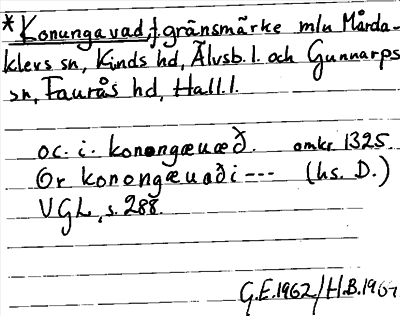 *Konungavad, f. gränsmärke mlu Mårda-
klevs sn, Kinds hd, Älvsb. l. och Gunnarps
sn, Faurås hd, Hall. l.
oc. i. konongæuæð. omkr 1325.
Or konongæuaði --- (hs. D.)
VGL, s. 288.
G.E. 1962/H.B. 1967